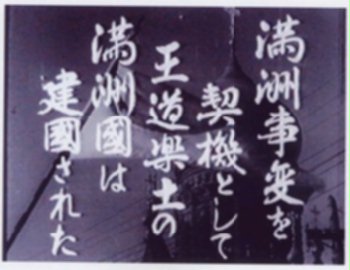 満洲事変を
契機として
王道楽土の
満洲國は
建國された